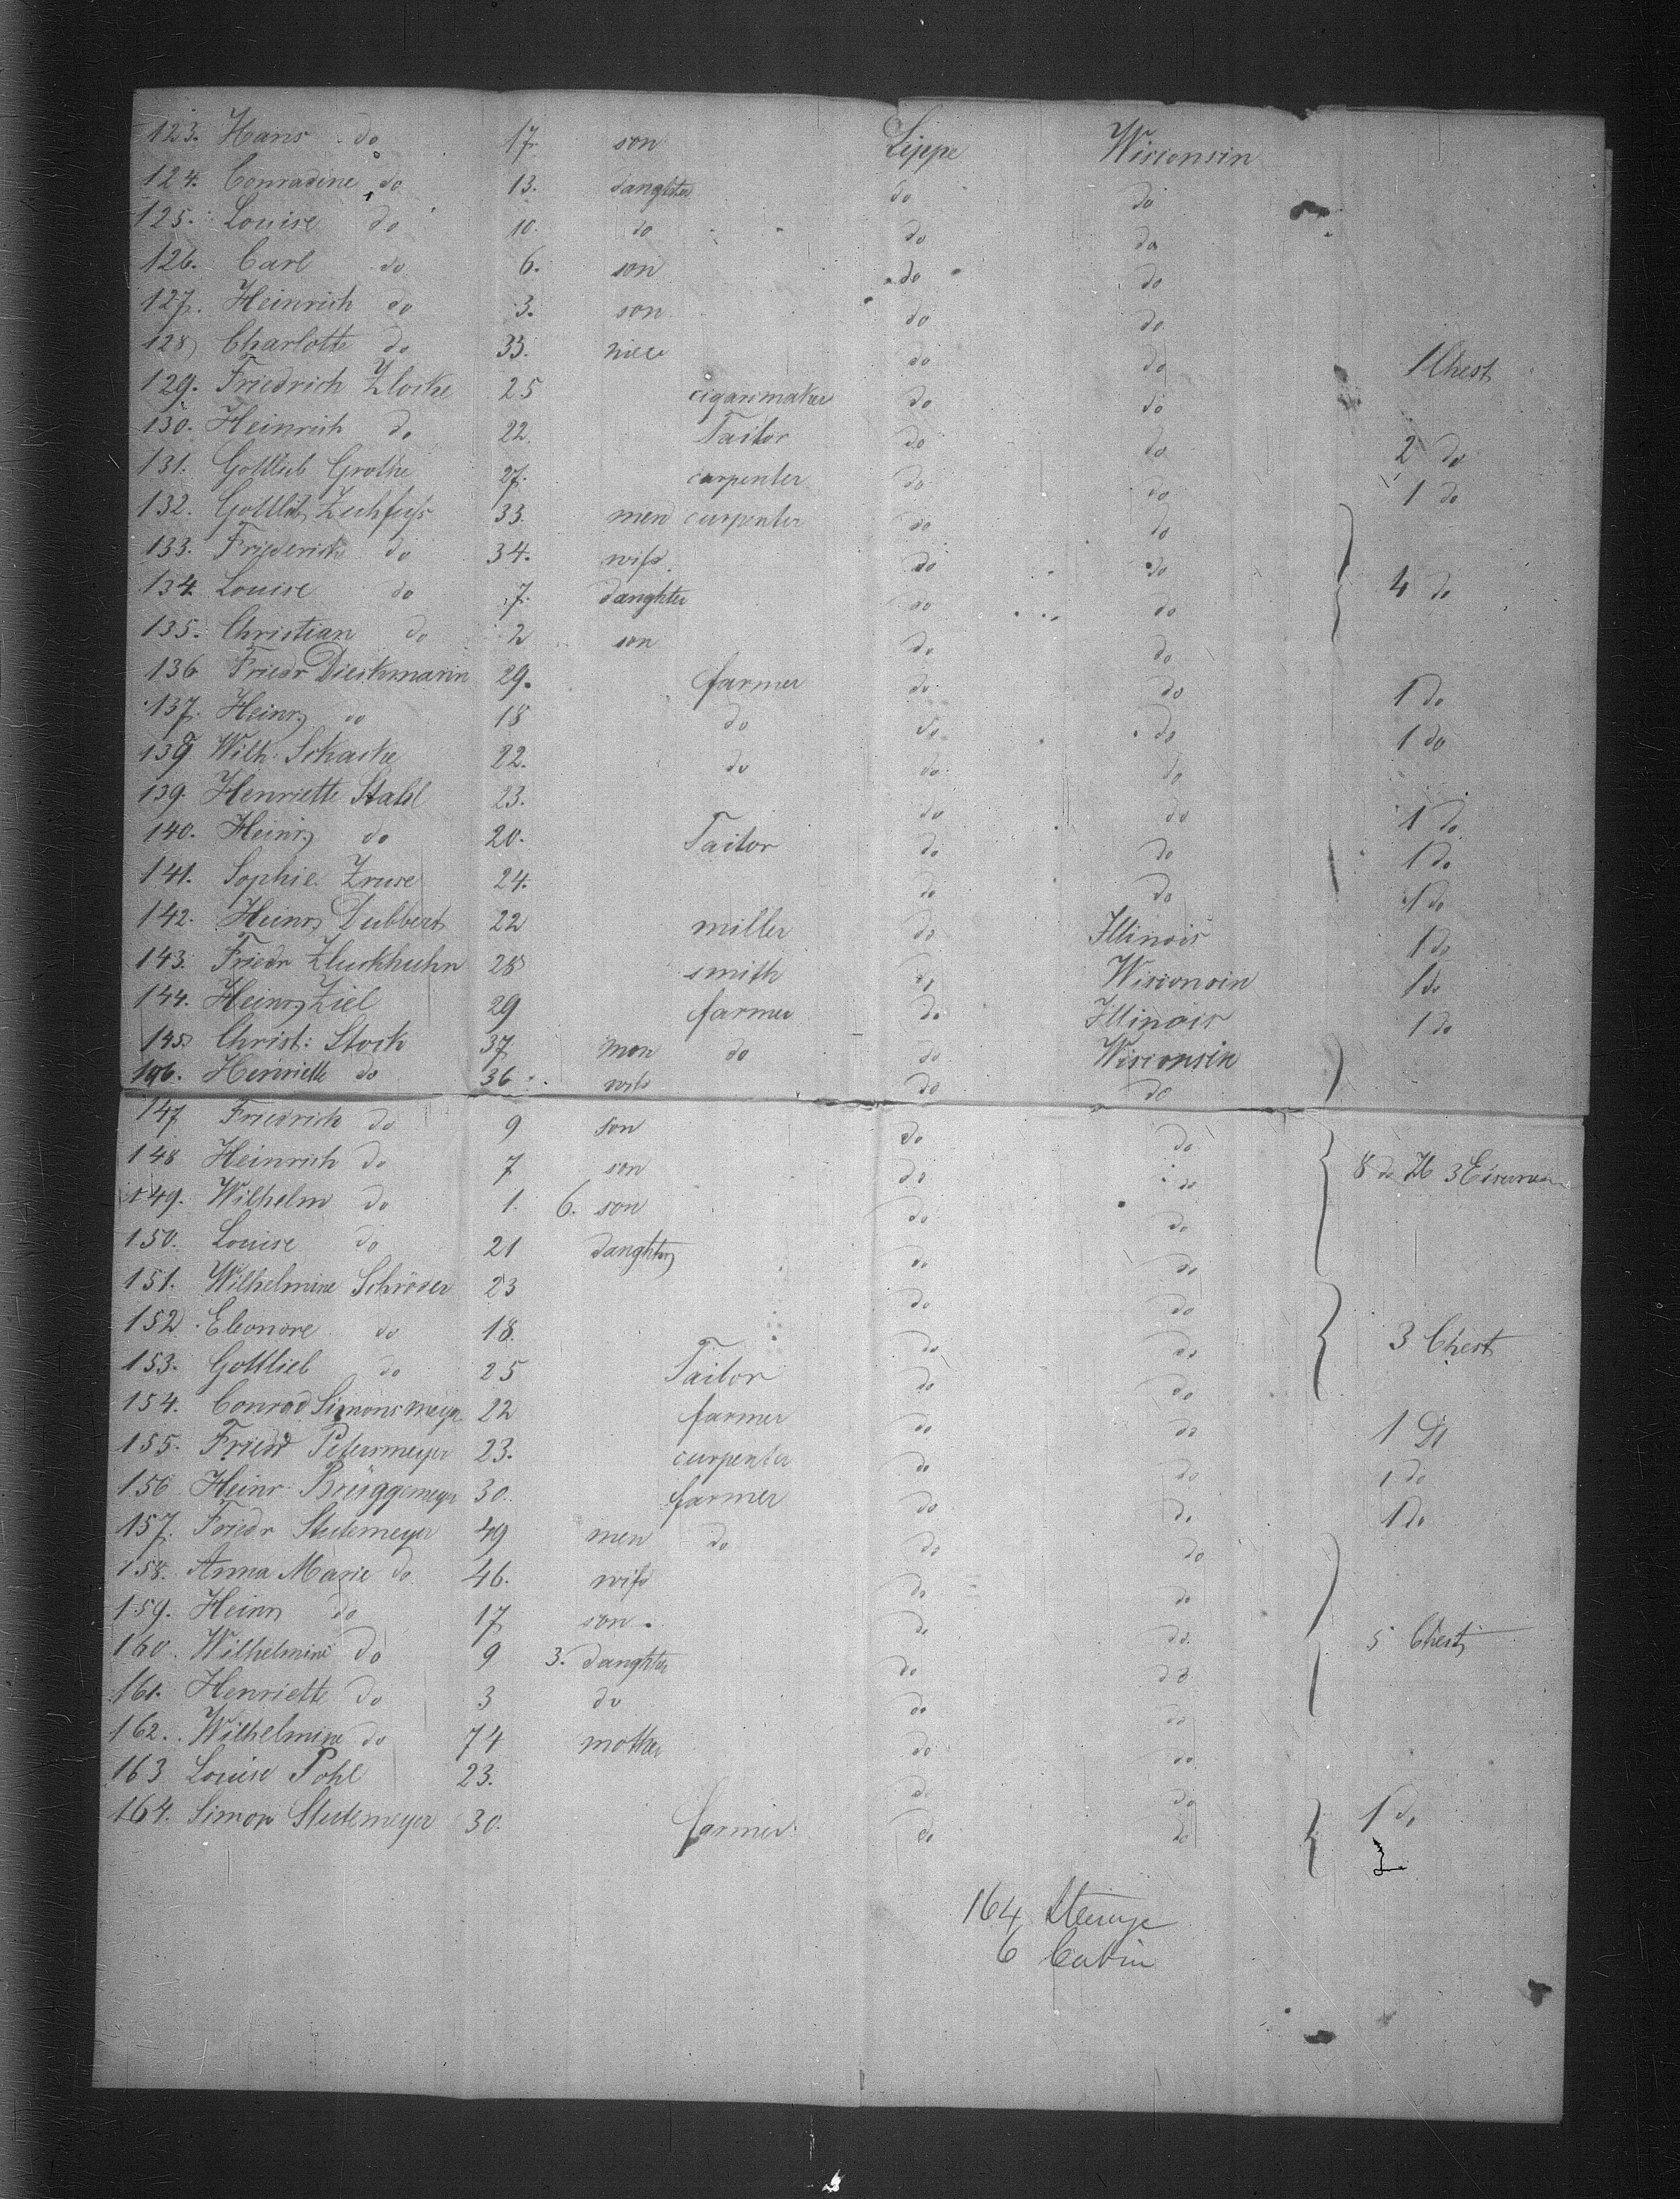 123. Hans do 17. son Lippe Wisconsin
124. Conradine do 13. daughter do do
125. Louise do 10. do do do
126. Carl do 6. son do do
127. Heinrich do 3. son do do
128 Charlotte do 33. do do
129. Friedrich Zlocke 25 cigarrmaker do do 1 Chest
130. Heinrich do 22. Tailor do do 2 do
131. Gottlieb Grothe 27. carpenter do do 1 do
132. Gottlieb 33. men carpenter do do
133. Friederike do 34. wife do do
134. Louise do 7. daughter do do 4 do
135. Christian do 2 son do do
136 Friedr Dieckmann 29. farmer do do 1 do
137. Heinr do 18 do do do 1 do
139 Wilh. Schacke 22. do do do
139. Henriette Stahl 23. do do 1 do
140. Heinr do 20. Tailor do do 1 do
141. Sophie Zruse 24. do do 1 do
142. Heinr Dubbert 22 miller do Illinois 1 do
143. Friedr Zluckhuhn 28 smith do Wisconsin 1 do
144. Heinr Ziel 29 farmer do Illinois 1 do
145 Christ: Stock 37 man do do Wisconsin
146. Henriette do 36 wife do do
147 Friedrich do 9 son do do
148 Heinrich do 7 son do do 8 do 3
149. Wilhelm do 1. 6. son do do
150. Louise do 21 daughter do do
151. Wilhelmine Schröder 23 do do
152. Eleonore do 18. do do 3 Chest
153. Gottlieb do 25 Tailor do do
154. Conrad Simonsmeyer 22 farmer do do 1 do
155. Friedr Petermeyer 23. carpenter do do 1 do
156 Heinr Brüggemeyer 30. farmer do do 1 do
157. Friedr Stutemeyer 49 men do do do
158. Anna Marie do 46. wife do do
159. Heinr do 17 son. do do
160. Wilhelmine do 9 3. daughter do do 5 Chest
161. Henriette do 3 do do do
162. Wilhelmine do 74 mother do do
163 Louise Pohl 23. do do
164. Simon Stutemeyer 30. farmer do do 1 do
164 Steerage
6 Cabin